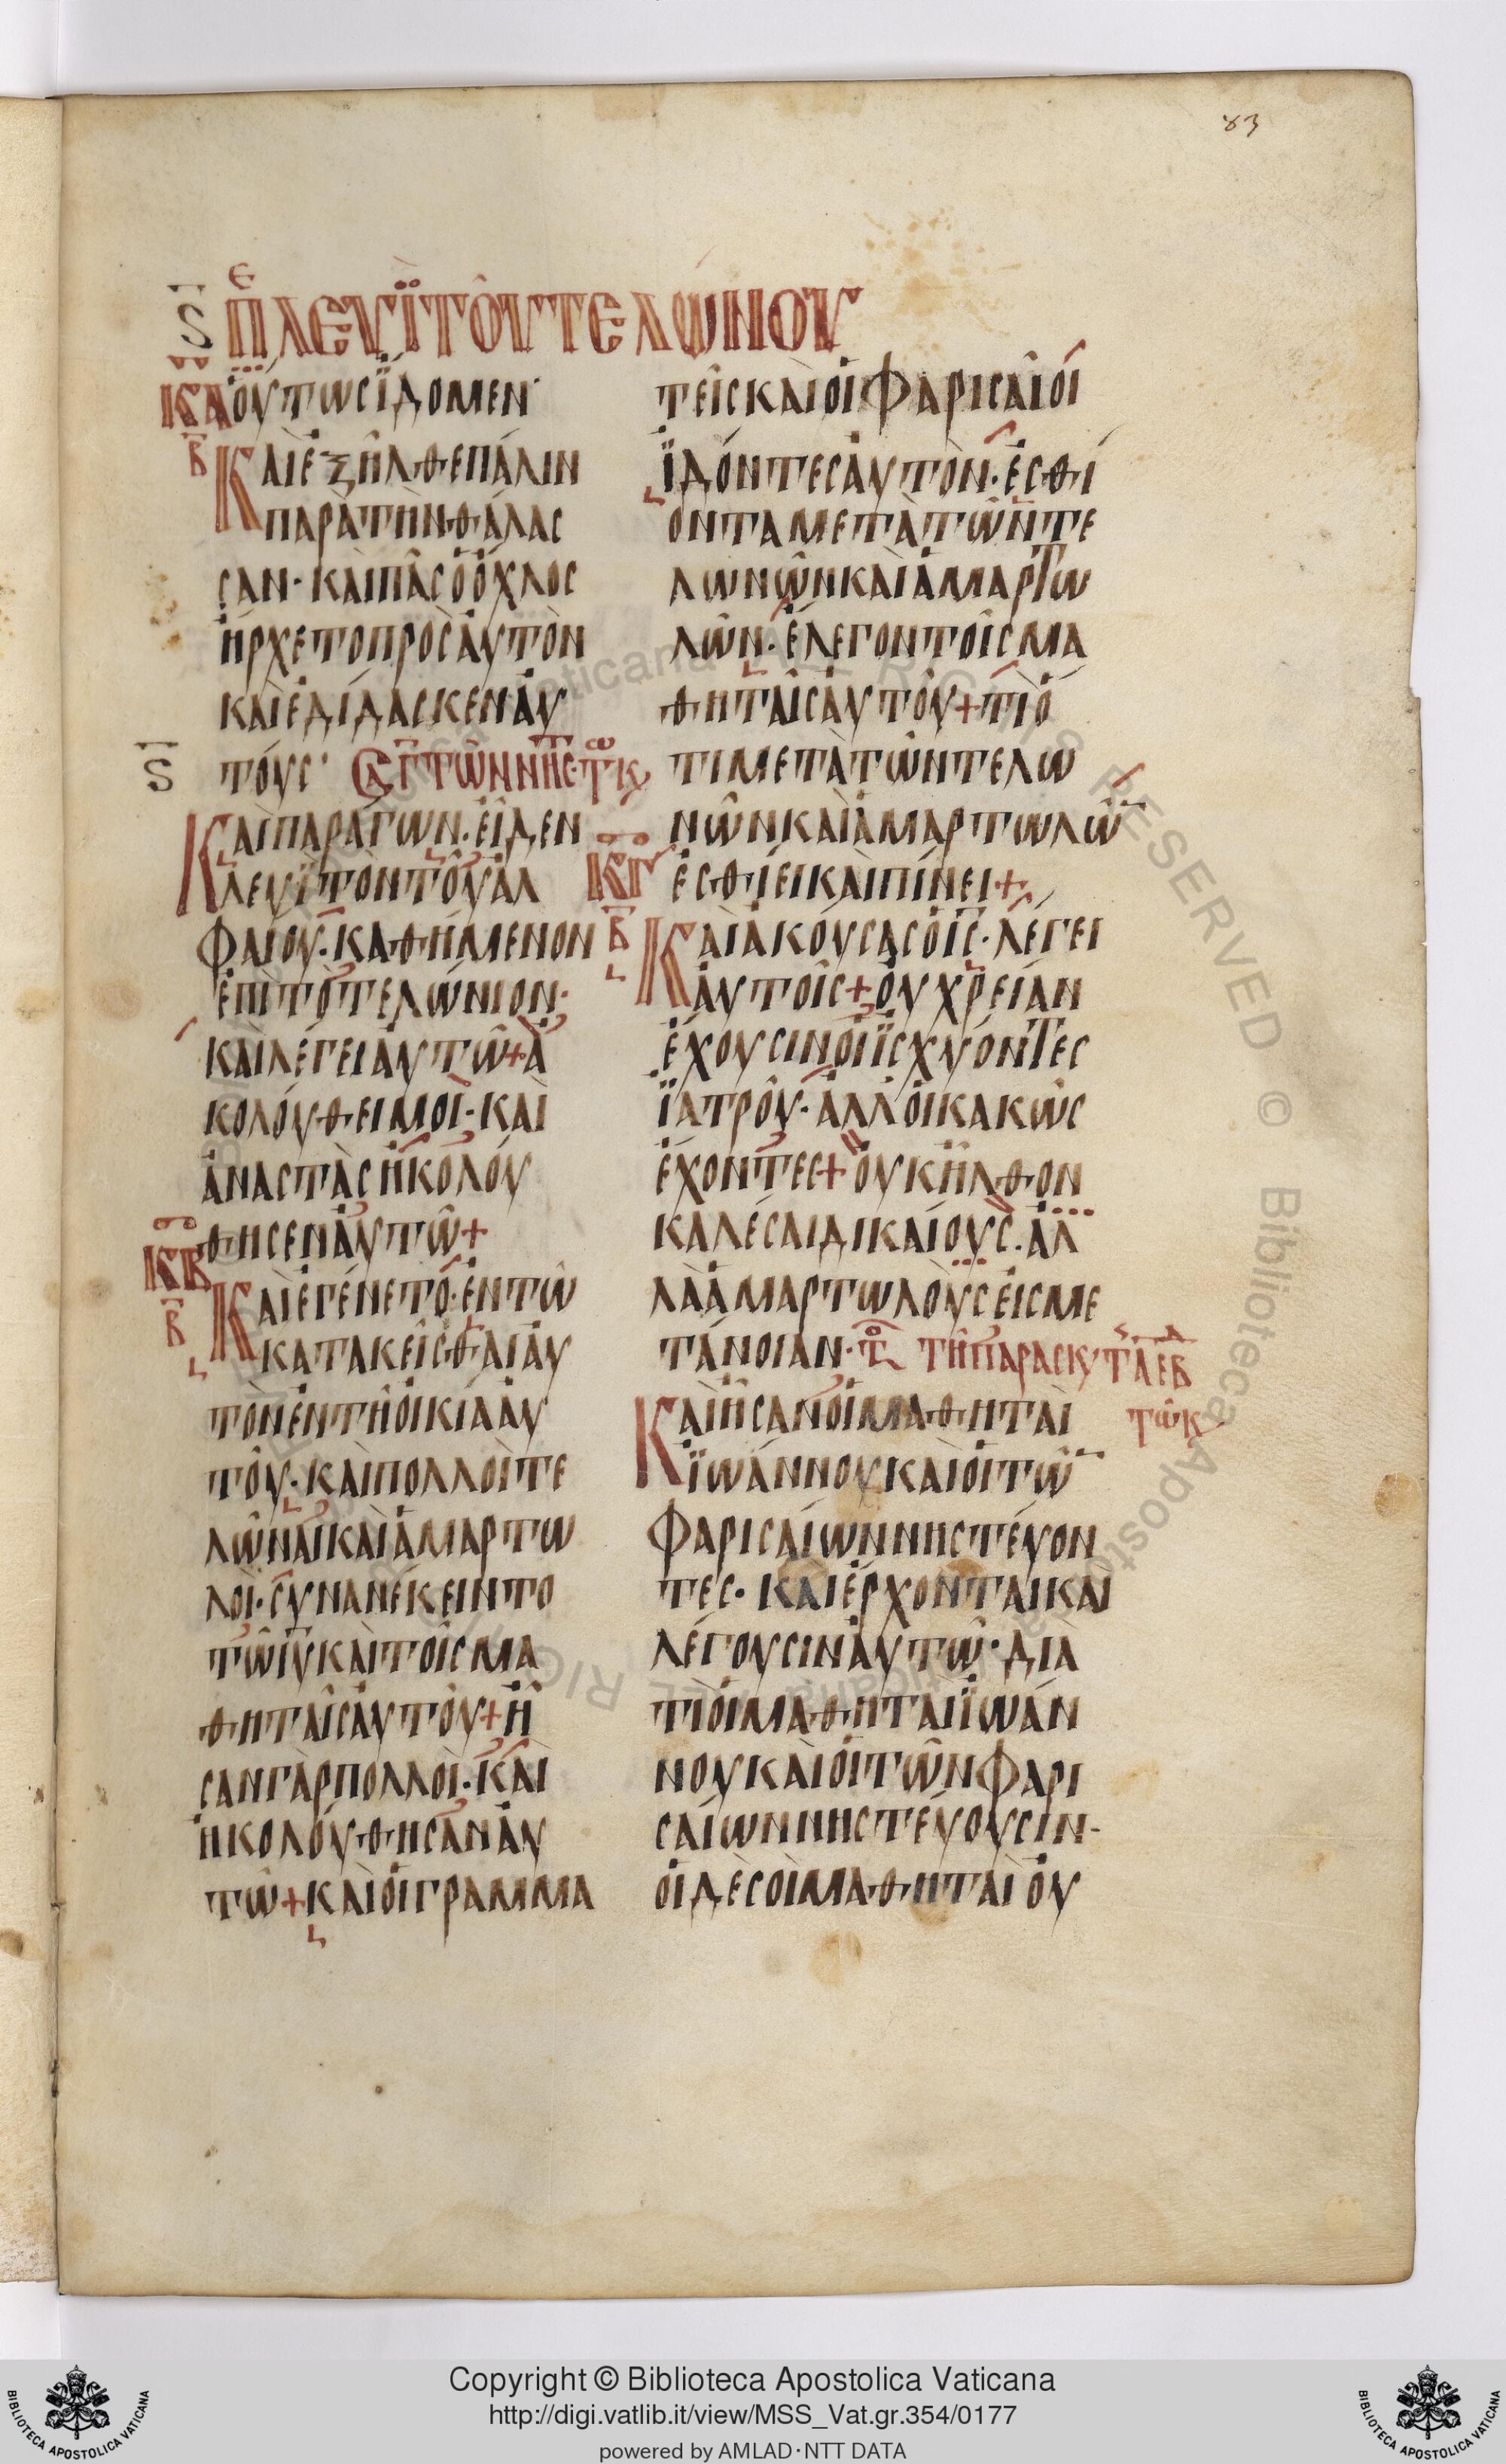 83
Ϛ ΠΕ ΛΕΥΪ ΤΟΥ ΤΕΛΩΝΟΥ
ΚΑ ΟΥΤΩΣΪΔΟΜΕΝ·
Β ΚΑΙΕΞΗΛΘΕΠΑΛΙΝ
ΠΑΡΑΤΗΝΘΑΛΑΣ
ΣΑΝ· ΚΑΙΠΑΣΟΟΧΛΟΣ
ΗΡΧΕΤΟΠΡΟΣΑΥΤΟΝ
ΚΑΙΕΔΙΔΑΣΚΕΝΑΥ
Ϛ ΤΟΥΣ·
ΚΑΙΠΑΡΑΓΩΝ· ΕΙΔΕΝ
ΛΕΥΪΤΟΝΤΟΥΑΛ
ΦΑΙΟΥ· ΚΑΘΗΜΕΝΟΝ
ΕΠΙΤΟΤΕΛΩΝΙΟΝ·
ΚΑΙΛΕΓΕΙΑΥΤΩ+Α
ΚΟΛΟΥΘΕΙΜΟΙ· ΚΑΙ
ΑΝΑΣΤΑΣΗΚΟΛΟΥ
ΘΗΣΕΝΑΥΤΩ+
ΚΒ Β ΚΑΙΕΓΕΝΕΤΟ· ΕΝΤΩ
ΚΑΤΑΚΕΙΣΘΑΙΑΥ
ΤΟΝΕΝΤΗΟΙΚΙΑΑΥ
ΤΟΥ· ΚΑΙΠΟΛΛΟΙΤΕ
ΛΩΝΑΙΚΑΙΑΜΑΡΤΩ
ΛΟΙ· ΣΥΝΑΝΕΚΕΙΝΤΟ
ΤΩΙΥΚΑΙΤΟΙΣΜΑ
ΘΗΤΑΙΣΑΥΤΟΥ+Η
ΣΑΝΓΑΡΠΟΛΛΟΙ· ΚΑΙ
ΗΚΟΛΟΥΘΗΣΑΝΑΥ
ΤΩ+ΚΑΙΟΙΓΡΑΜΜΑ
ΤΕΙΣΚΑΙΟΙΦΑΡΙΣΑΙΟΙ
ΪΔΟΝΤΕΣΑΥΤΟΝ· ΕΣΘΙ
ΟΝΤΑΜΕΤΑΤΩΝΤΕ
ΛΩΝΩΝΚΑΙΑΜΑΡΤΩ
ΛΩΝ· ΕΛΕΓΟΝΤΟΙΣΜΑ
ΘΗΤΑΙΣΑΥΤΟΥ+ΤΙΟ
ΤΙΜΕΤΑΤΩΝΤΕΛΩ
ΝΩΝΚΑΙΑΜΑΡΤΩΛΩ¯
ΚΓ ΕΣΘΙΕΙΚΑΙΠΙΝΕΙ+
Β ΚΑΙΑΚΟΥΣΑΣΟΙΣ· ΛΕΓΕΙ
ΑΥΤΟΙΣ+ΟΥΧΡΕΙΑΝ
ΕΧΟΥΣΙΝΟΙΪΣΧΥΟΝΤΕΣ
ΪΑΤΡΟΥ· ΑΛΛΟΙΚΑΚΩΣ
ΕΧΟΝΤΕΣ+ΟΥΚΗΛΘΟΝ
ΚΑΛΕΣΑΙΔΙΚΑΙΟΥΣ· ΑΛ
ΛΑΑΜΑΡΤΩΛΟΥΣΕΙΣΜΕ
ΤΑΝΟΙΑΝ· ΤΗΠΑΡΑΣΚΥ
ΚΑΙΗΣΑΝΟΙΜΑΘΗΤΑΙ
ΪΩΑΝΝΟΥΚΑΙΟΙΤΩ¯
ΦΑΡΙΣΑΙΩΝΝΗΣΤΕΥΟΝ
ΤΕΣ· ΚΑΙΕΡΧΟΝΤΑΙΚΑΙ
ΛΕΓΟΥΣΙΝΑΥΤΩ· ΔΙΑ
ΤΙΟΙΜΑΘΗΤΑΙΪΩΑΝ
ΝΟΥΚΑΙΟΙΤΩΝΦΑΡΙ
ΣΑΙΩΝΝΗΣΤΕΥΟΥΣΙΝ·
ΟΙΔΕΣΟΙΜΑΘΗΤΑΙΟΥ
Copyright © Biblioteca Apostolica Vaticana
http://digi.vatlib.it/view/MSS_Vat.gr.354/0177
powered by AMLAD·NTT DATA
BIBLIOTECA APOSTOLICA VATICANA
BIBLIOTECA APOSTOLICA VATICANA